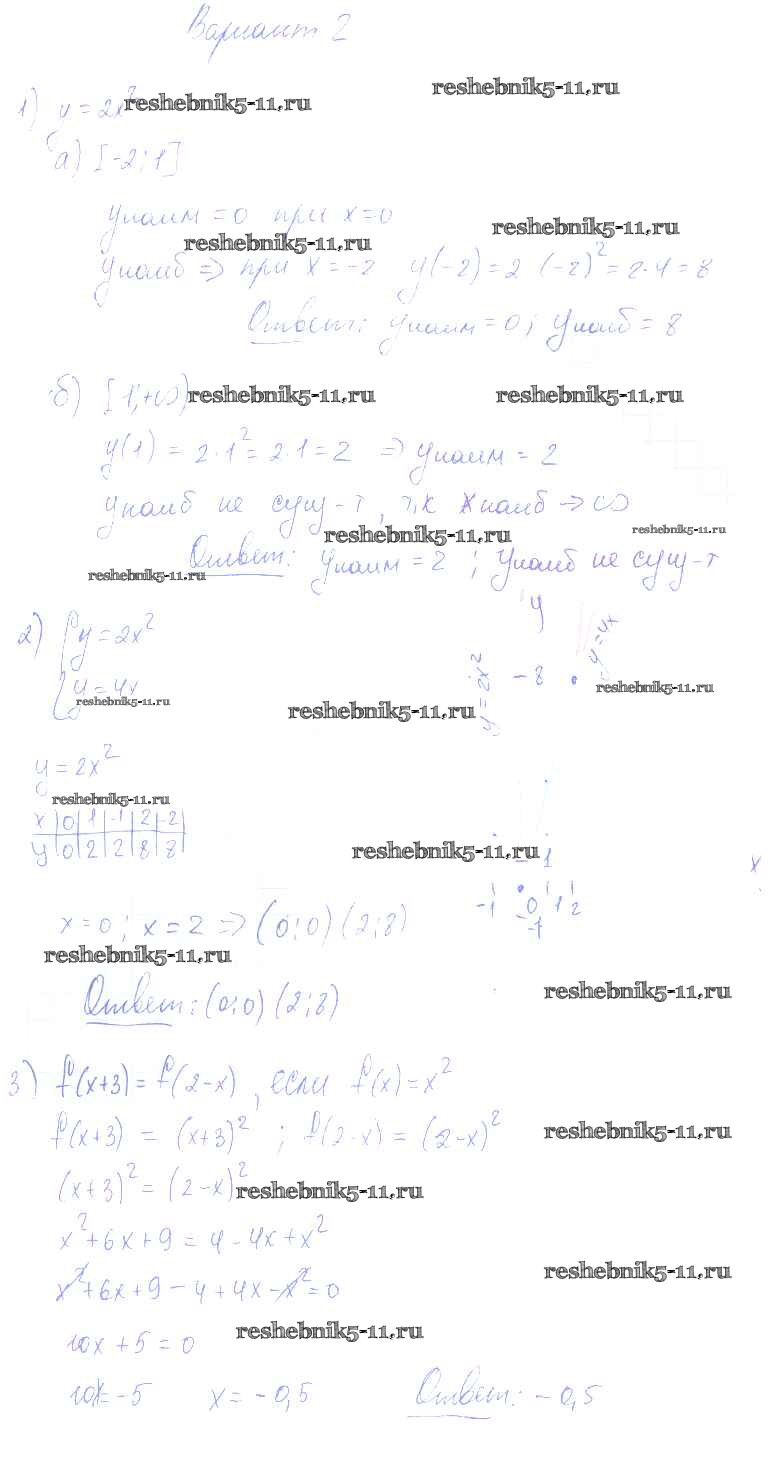 Вариант 2
reshebnik5-11.ru
1) y = 2x² reshebnik5-11.ru
а) [-2; 1]
yнаим = 0 при x = 0
reshebnik5-11.ru reshebnik5-11.ru
yнаиб => при x = -2 y(-2) = 2 (-2)² = 2·4 = 8
Ответ: yнаим = 0; yнаиб = 8
б) [1; +∞) reshebnik5-11.ru reshebnik5-11.ru
y(1) = 2·1² = 2·1 = 2 => yнаим = 2
yнаиб не сущ-т, т.к xнаиб → ∞
reshebnik5-11.ru reshebnik5-11.ru
Ответ: yнаим = 2; yнаиб не сущ-т
reshebnik5-11.ru
2) { y = 2x²
y = 4x
reshebnik5-11.ru
y
y = 2x² – 8 y = 4x
reshebnik5-11.ru
reshebnik5-11.ru
y = 2x²
reshebnik5-11.ru
x | 0 | 1 | -1 | 2 | -2
y | 0 | 2 | 2 | 8 | 8
reshebnik5-11.ru
1
x
-1 0 1 2
-1
x = 0; x = 2 => (0; 0) (2; 8)
reshebnik5-11.ru
Ответ: (0; 0) (2; 8)
reshebnik5-11.ru
3) f(x+3) = f(2-x), если f(x) = x²
f(x+3) = (x+3)²; f(2-x) = (2-x)²
reshebnik5-11.ru
(x+3)² = (2-x)² reshebnik5-11.ru
x² + 6x + 9 = 4 - 4x + x²
x² + 6x + 9 - 4 + 4x - x² = 0
reshebnik5-11.ru
10x + 5 = 0 reshebnik5-11.ru
10x = -5 x = -0,5 Ответ: -0,5